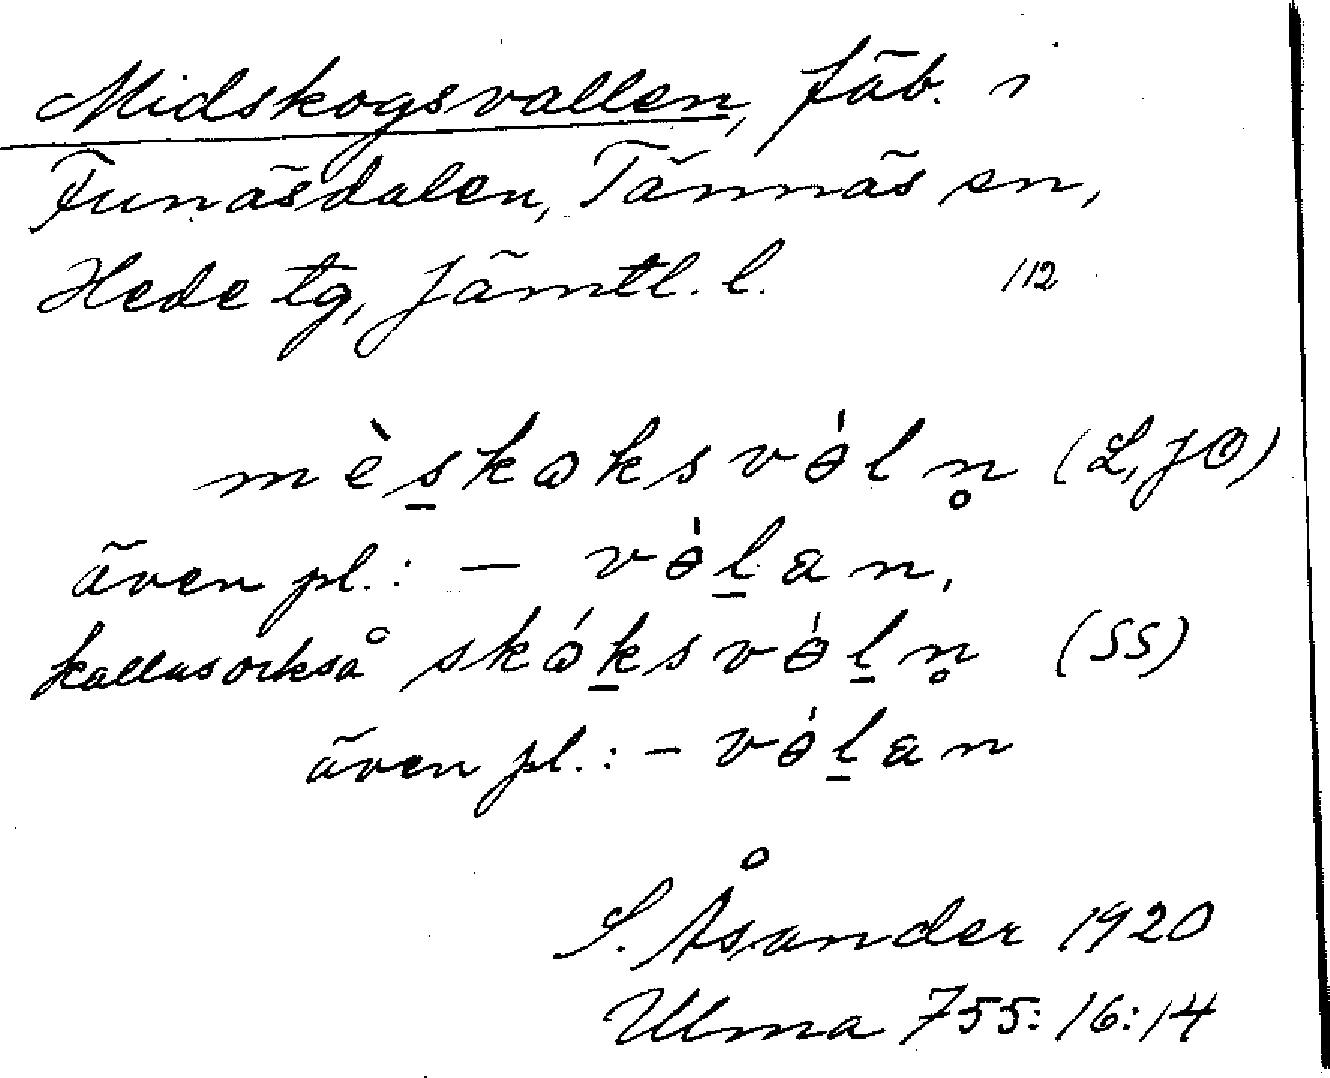 Midskogsvallen, fäb. i
Funäsdalen, Tännäs sn,
Hede tg, Jämtl. l. 112
mès̠kɷksvə̍ln̥ (L, JO)
även pl.: – və̍l̠an,
kallas också skɷ́k̠svə̍l̠n̥ (SS)
även pl.: – və̍l̠an
S. Åsander 1920
Ulma 755:16:14